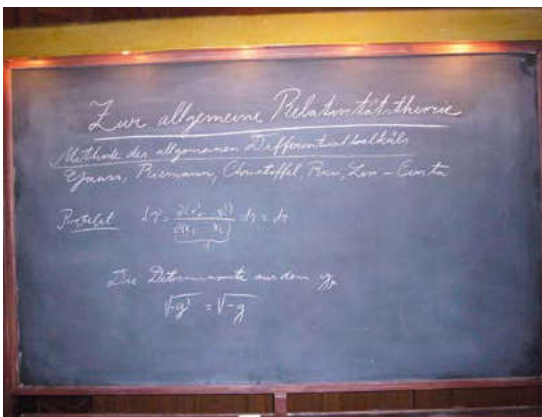 Zur allgemeine Relativitätstheorie
Methode des allgemeinen Differentialkalküls
Gauss, Riemann, Christoffel, Ricci, Levi-Civita
dτ' = ∂(x'₁...x'₄) / ∂(x₁...x₄) dτ = dτ
1
Die Determinante aus dem g
√-g' = √-g